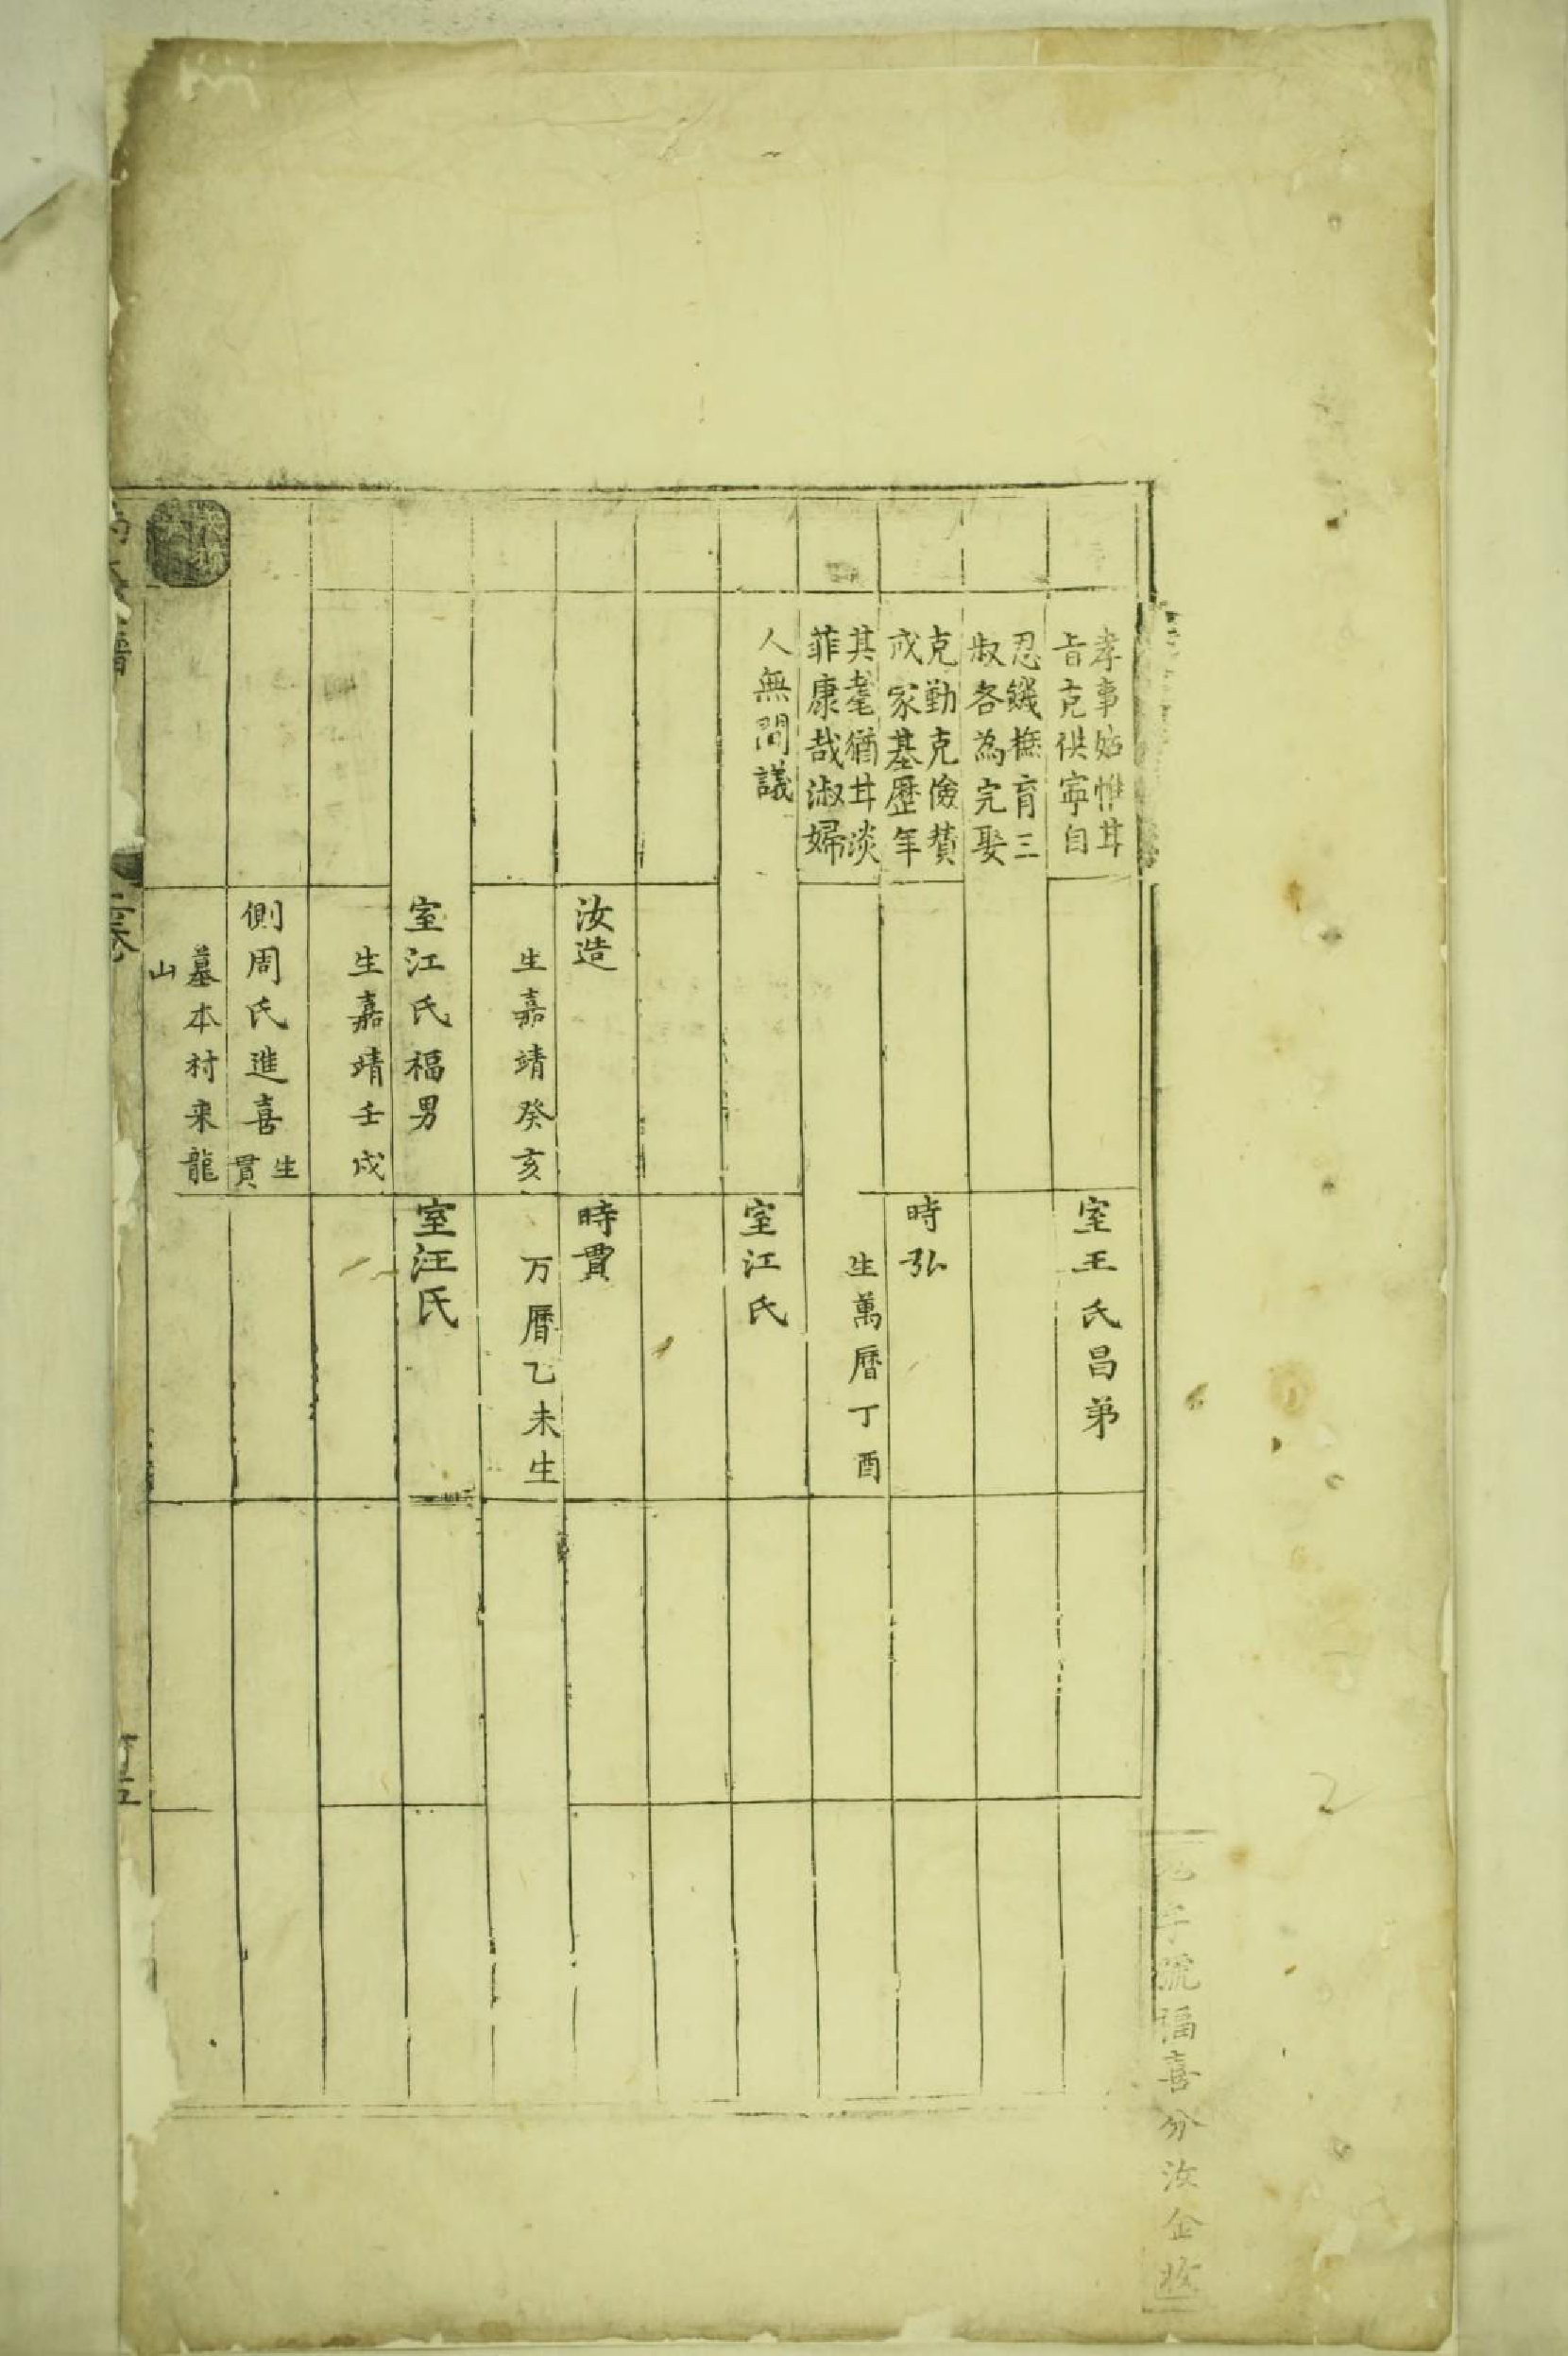 孝事姑惟甘
旨克供寧自
忍饑撫育三
叔各為完娶
克勤克儉賛
成家基歷年
其耄猶甘淡
菲康哉淑婦
人無間議
汝造
生嘉靖癸亥
室江氏福男
生嘉靖壬戌
側周氏進喜
生
貫
墓本村来龍
山
室王氏昌弟
時弘
生萬曆丁酉
室江氏
時貫
万曆乙未生
室汪氏
號福喜分汝企